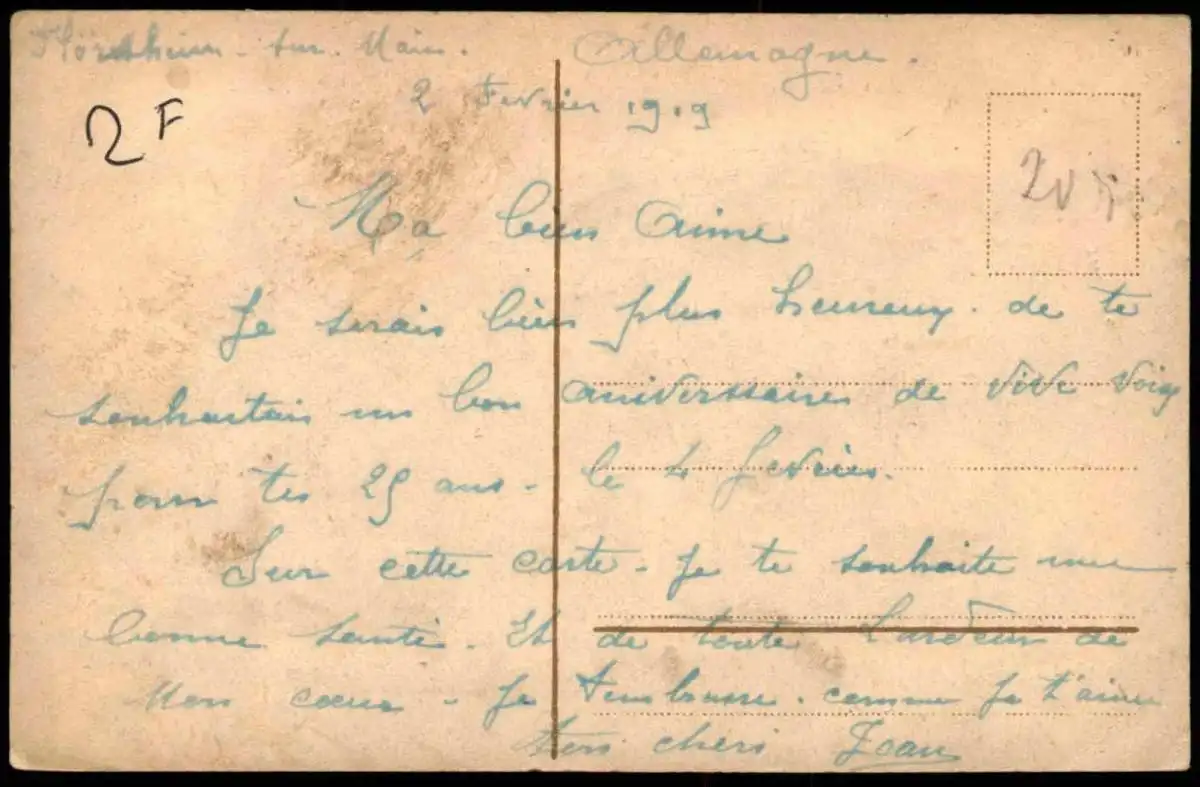 Flörsheim - sur. Main. Allemagne.
2 Fevrier 1919
2 F
Ma bien Aime
Je serais bien plus heureux. de te
souhaitais un bon aniverssaires de vive voix
pour tes 25 ans - le 4 fevrier.
Sur cette carte - Je te souhaite une
bonne santé. Et de toute L'ardeur de
Mon cœur - Je t'embrasse. comme Je t'aime
ton cheri Jean